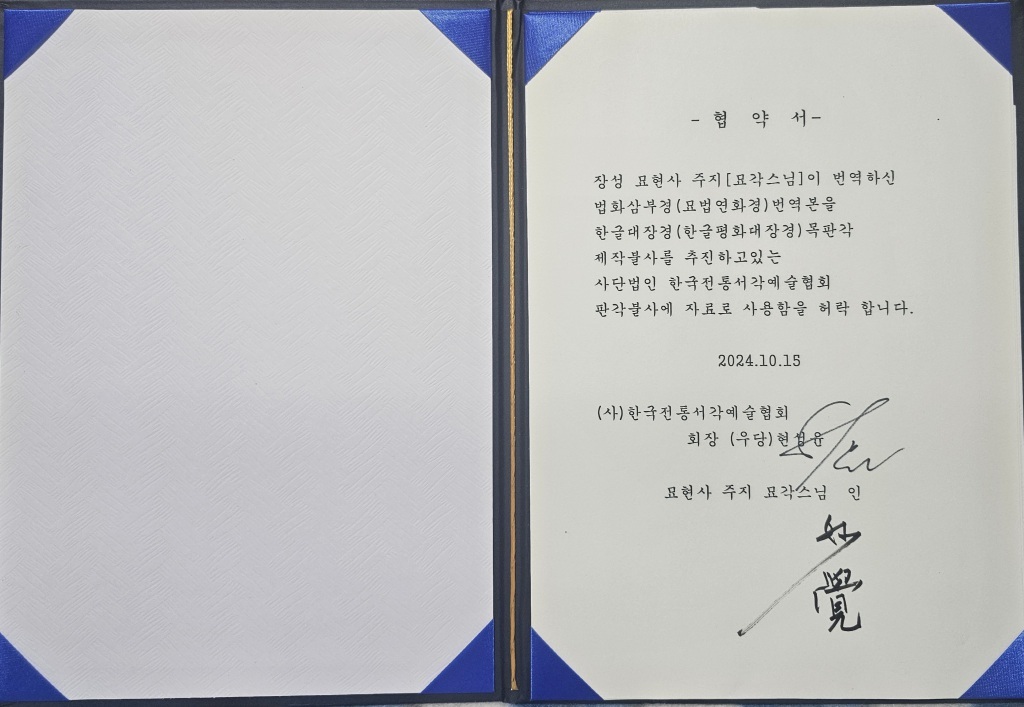 - 협 약 서-
장성 묘현사 주지[묘각스님]이 번역하신
법화삼부경(묘법연화경)번역본을
한글대장경(한글평화대장경)목판각
제작불사를 추진하고있는
사단법인 한국전통서각예술협회
판각불사에 자료로 사용함을 허락 합니다.
2024.10.15
(사)한국전통서각예술협회
회장 (우당)
묘현사 주지 묘각스님 인
妙
覺